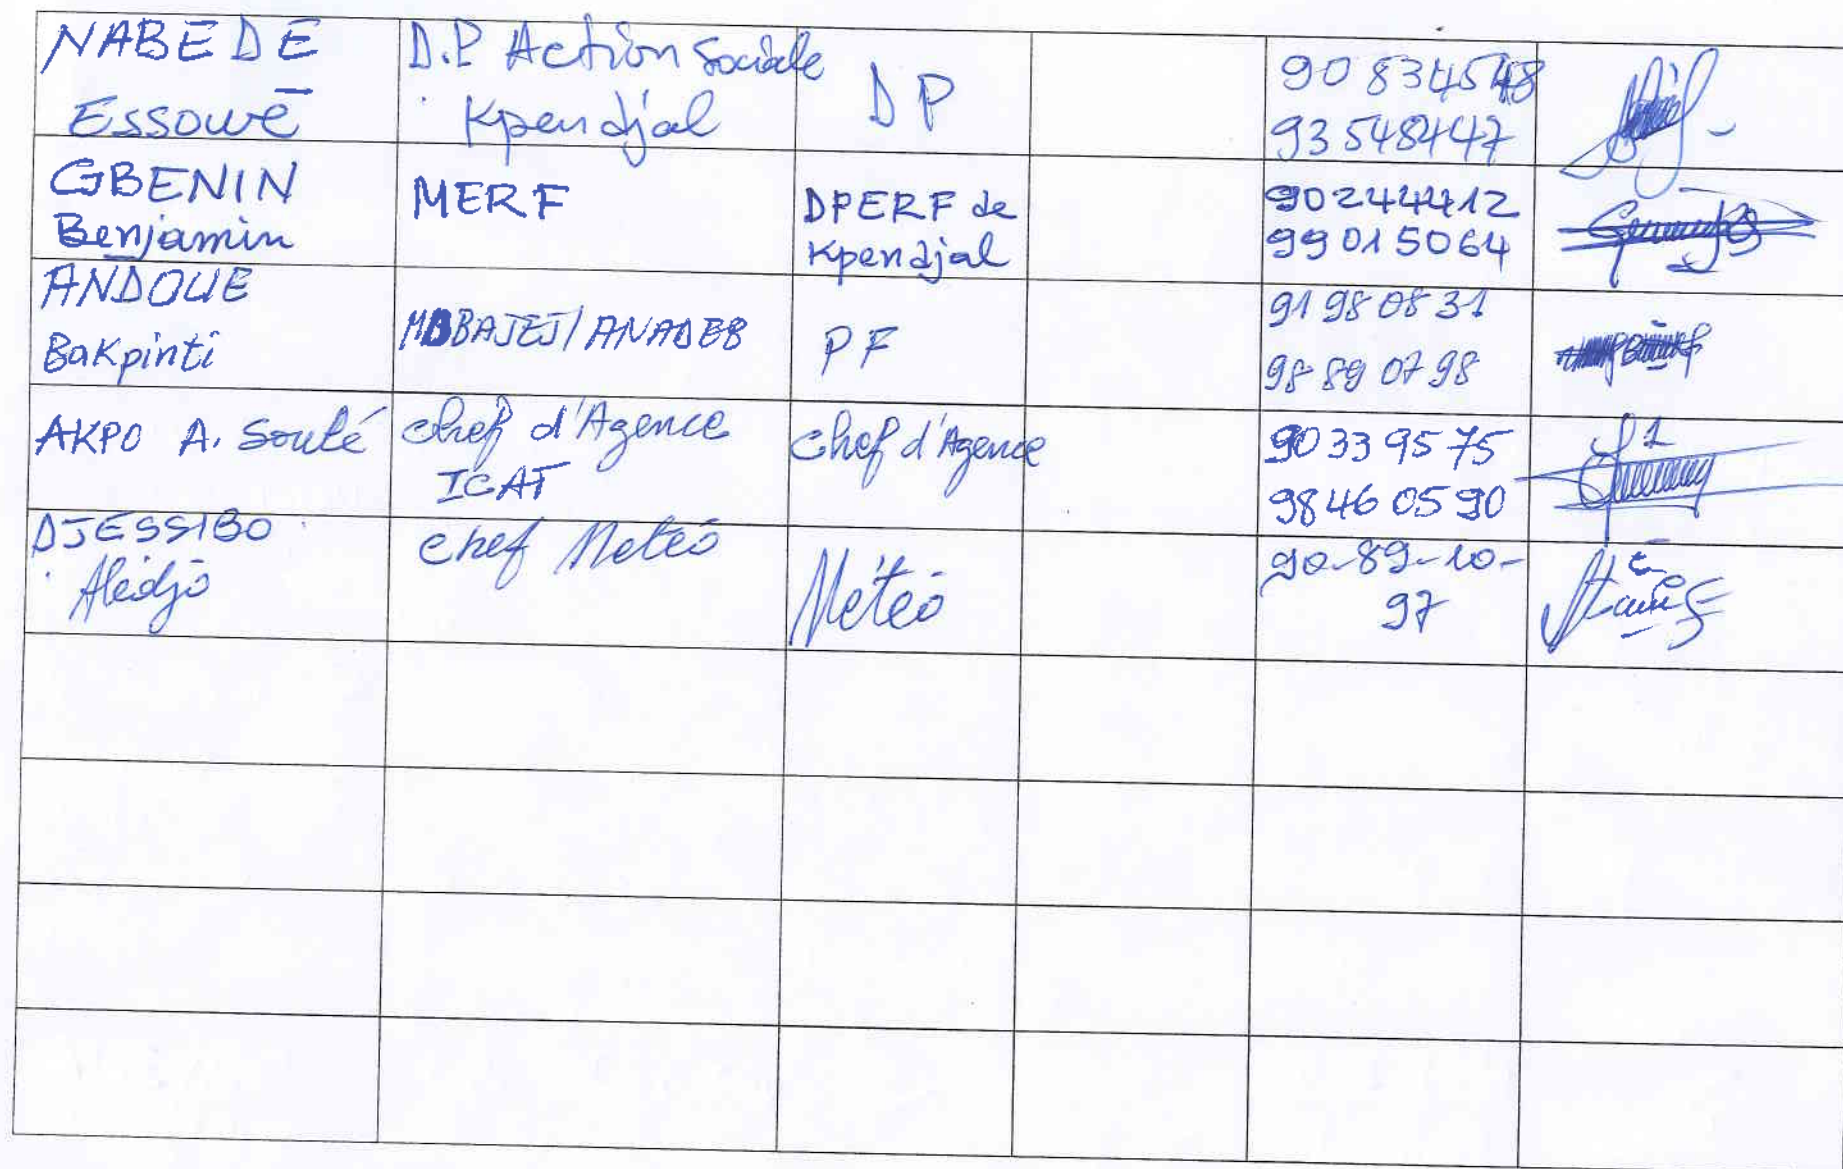 NABEDE
Essowè
D.P Action Sociale
Kpendjal
DP
90 834548
93548447
GBENIN
Benjamin
MERF
DPERF de
Kpendjal
90244412
99015064
ANDOUE
Bakpinti
MDBAJEJ/ANADEB
PF
91 98 08 31
98 89 07 98
AKPO A. Soulé
chef d'Agence
ICAT
chef d'Agence
90 33 95 75
98 46 05 90
DJESSIBO
Alédjo
chef Météo
Météo
90-89-10-
97